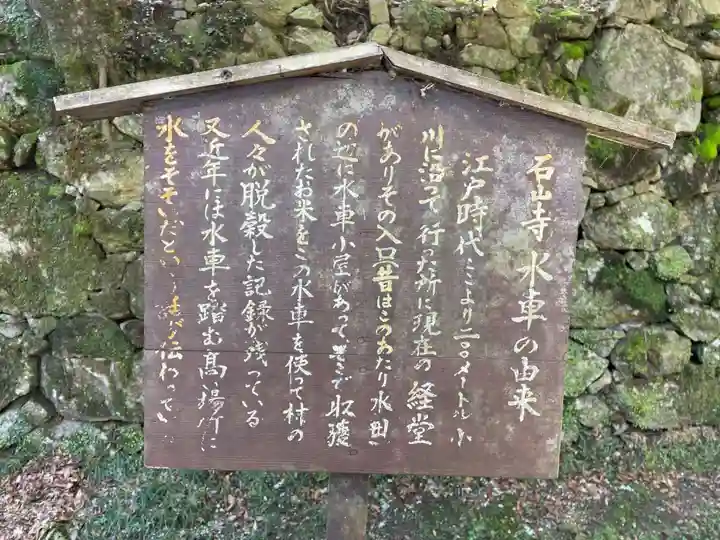 石山寺水車の由来
江戸時代ここより二〇メートル小
川に沿って行った所に現在の経堂
がありその入口昔はこのあたり水田
の辺に水車小屋があって 収穫
されたお米をこの水車を使って村の
人々が脱穀した記録が残っている
又近年には水車を踏む高い場所に
水をそそいだという 伝わってい